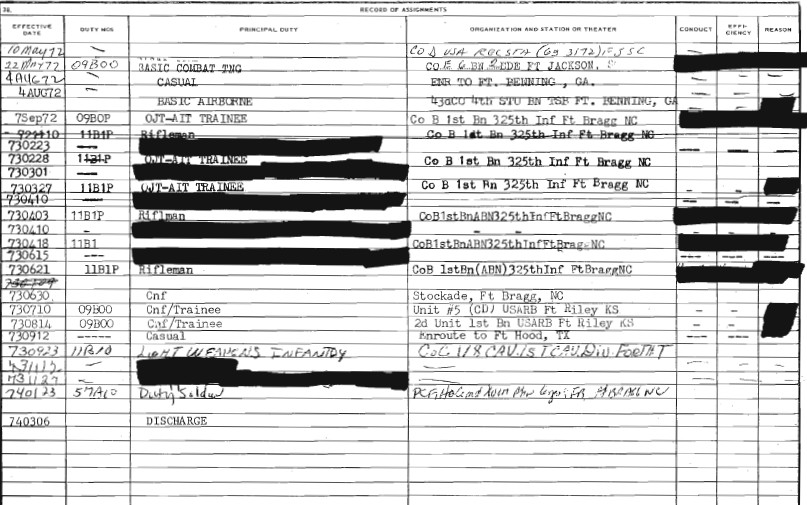 38. RECORD OF ASSIGNMENTS
EFFECTIVE DATE DUTY MOS PRINCIPAL DUTY ORGANIZATION AND STATION OR THEATER CONDUCT EFFI- CIENCY REASON
10 May 72 — Co D USA RECSTA (Gp 3172)
22 May 72 09B00 BASIC COMBAT TNG CO E 6 BN 2 BDE FT JACKSON,
4 AUG 72 — CASUAL ENR TO FT. BENNING, GA.
4AUG72 BASIC AIRBORNE 43dCO 4th STU BN TSB FT. BENNING, GA
7Sep72 09B0P OJT-AIT TRAINEE Co B 1st Bn 325th Inf Ft Bragg NC
11B1P Rifleman Co B 1st Bn 325th Inf Ft Bragg NC
730223 —
730228 11B1P OJT-AIT TRAINEE Co B 1st Bn 325th Inf Ft Bragg NC
730301 —
730327 11B1P OJT-AIT TRAINEE Co B 1st Bn 325th Inf Ft Bragg NC
730410 —
730403 11B1P Riflman CoB1stBnABN325thInfFtBraggNC
730410 - - -
730418 11B1 CoB1stBnABN325thInfFtBraggNC
730615 ---
730621 11B1P Rifleman CoB 1stBn(ABN)325thInf FtBraggNC
730630 Cnf Stockade, Ft Bragg, NC
730710 09B00 Cnf/Trainee Unit #5 (CD) USARB Ft Riley KS
730814 09B00 Cnf/Trainee 2d Unit 1st Bn USARB Ft Riley KS
730912 ----- Casual Enroute to Ft Hood, TX
730923 11B10 LIGHT WEAPONS INFANTRY Co C 1/8 CAV. 1ST CAV. Div.
731127 —
740123 57A10 Duty Soldier Ft BRAGG NC
740306 DISCHARGE